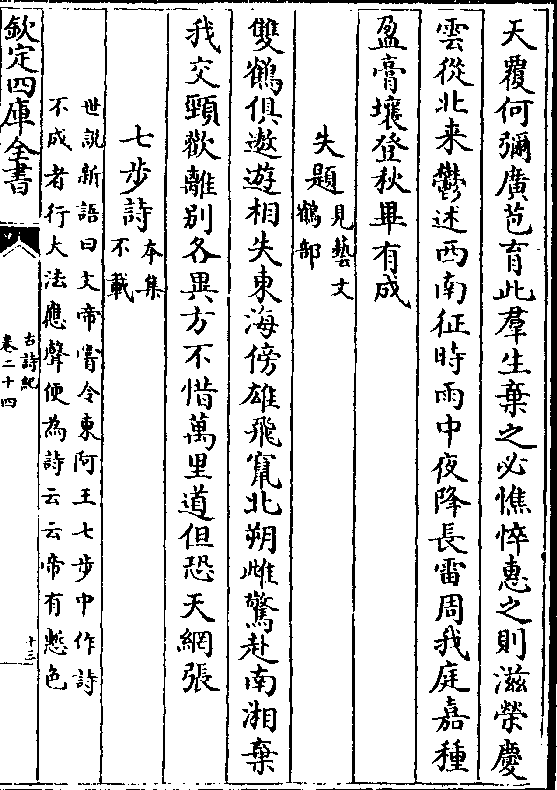 天覆何彌廣苞育此羣生棄之必憔悴惠之則滋榮慶
雲從北来鬱述西南征時雨中夜降長雷周我庭嘉種
盈膏壤登秋畢有成
失題見藝文
鶴部
雙鶴俱遨遊相失東海傍雄飛竄北朔雌驚赴南湘棄
我交頸歡離别各異方不惜萬里道但恐天網張
七步詩本集
不載
世説新語曰文帝嘗令東阿王七步中作詩
不成者行大法應聲便為詩云云帝有慙色
欽定四庫全書
古詩紀
卷二十四
十三